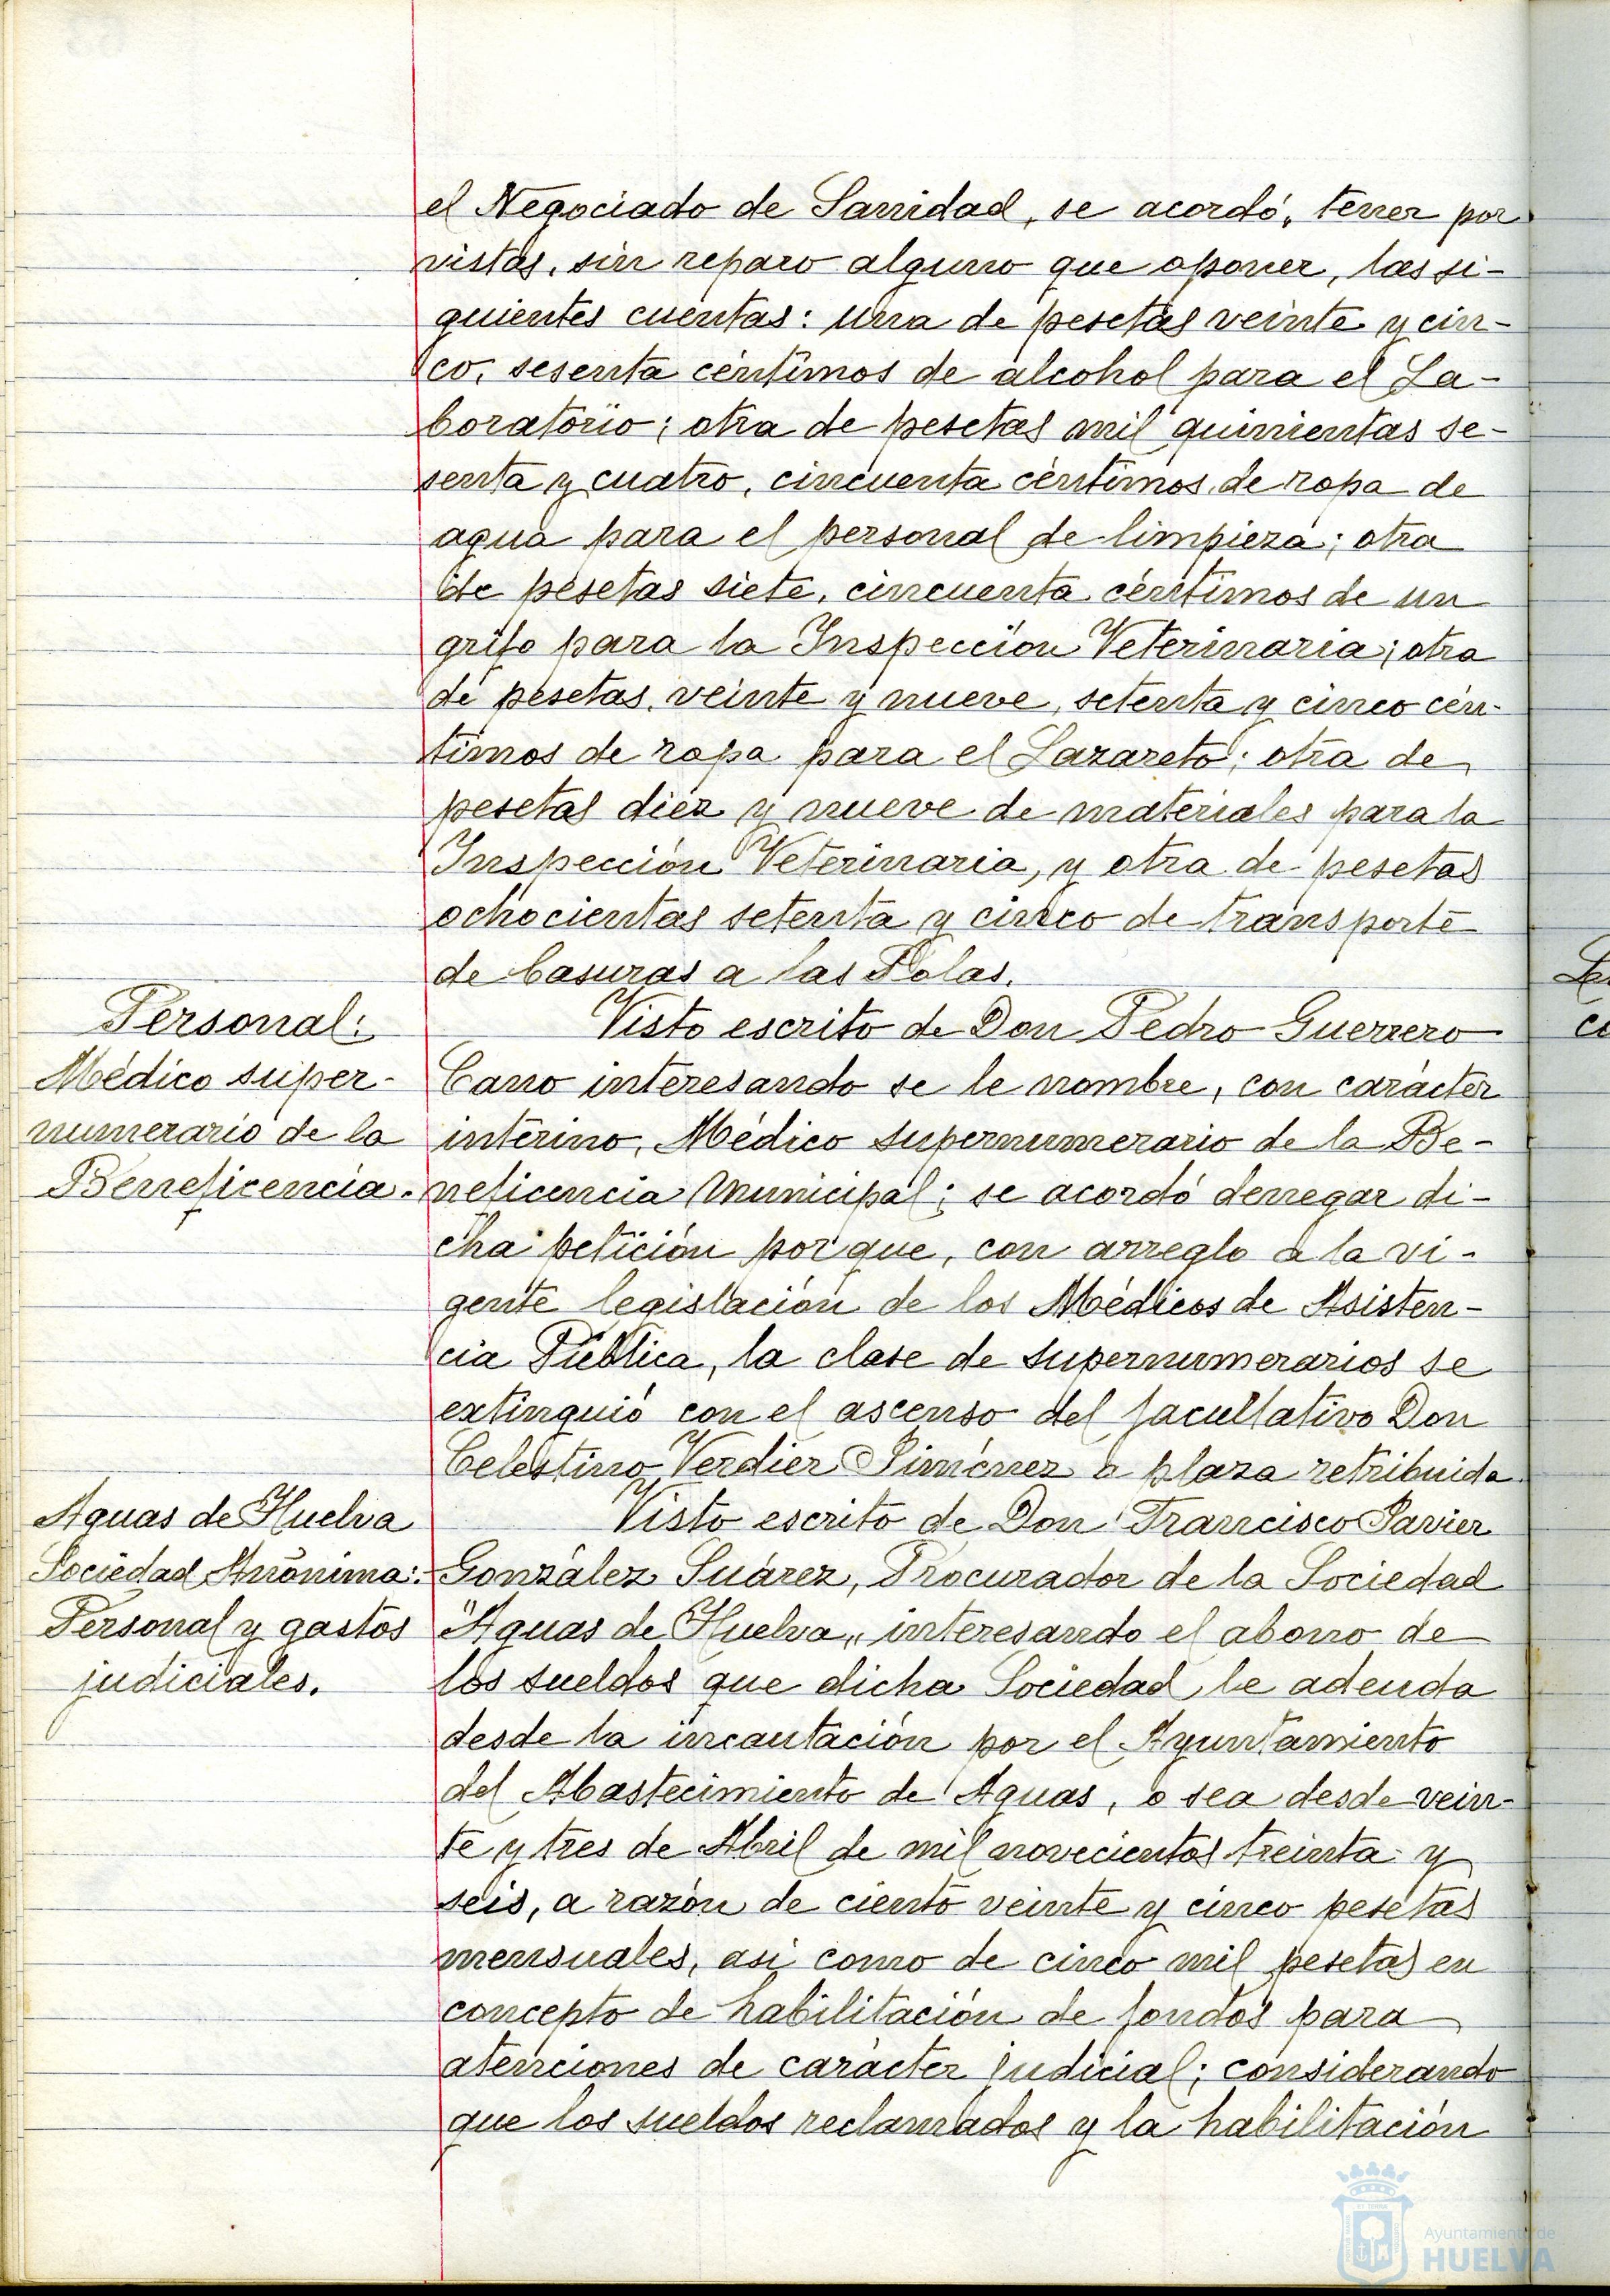 el Negociado de Sanidad, se acordó, tener por
vistas, sin reparo alguno que oponer, las si-
guientes cuentas: una de pesetas veinte y cin-
co, sesenta céntimos de alcohol para el La-
boratorio; otra de pesetas mil quinientas se-
senta y cuatro, cincuenta céntimos, de ropa de
agua para el personal de limpieza; otra
de pesetas siete, cincuenta céntimos de un
grifo para la Inspección Veterinaria; otra
de pesetas, veinte y nueve, setenta y cinco cén-
timos de ropa para el Lazareto; otra de
pesetas diez y nueve de materiales para la
Inspección Veterinaria, y otra de pesetas
ochocientas setenta y cinco de transporte
de basuras a las Polas.
Personal:
Médico super-
numerario de la
Beneficencia.
Visto escrito de Don Pedro Guerrero
Cano interesando se le nombre, con carácter
interino, Médico supernumerario de la Be-
neficencia Municipal; se acordó denegar di-
cha petición porque, con arreglo a la vi-
gente legislación de los Médicos de Asisten-
cia Pública, la clase de supernumerarios se
extinguió con el ascenso del facultativo Don
Celestino Verdier Jiménez a plaza retribuida
Aguas de Huelva
Sociedad Anónima:
Personal y gastos
judiciales.
Visto escrito de Don Francisco Javier
González Suárez, Procurador de la Sociedad
"Aguas de Huelva", interesando el abono de
los sueldos que dicha Sociedad le adeuda
desde la incautación por el Ayuntamiento
del Abastecimiento de Aguas, o sea desde vein-
te y tres de Abril de mil novecientos treinta y
seis, a razón de ciento veinte y cinco pesetas
mensuales, asi como de cinco mil pesetas en
concepto de habilitación de fondos para
atenciones de carácter judicial; considerando
que los sueldos reclamados y la habilitación
Ayuntamiento de
HUELVA